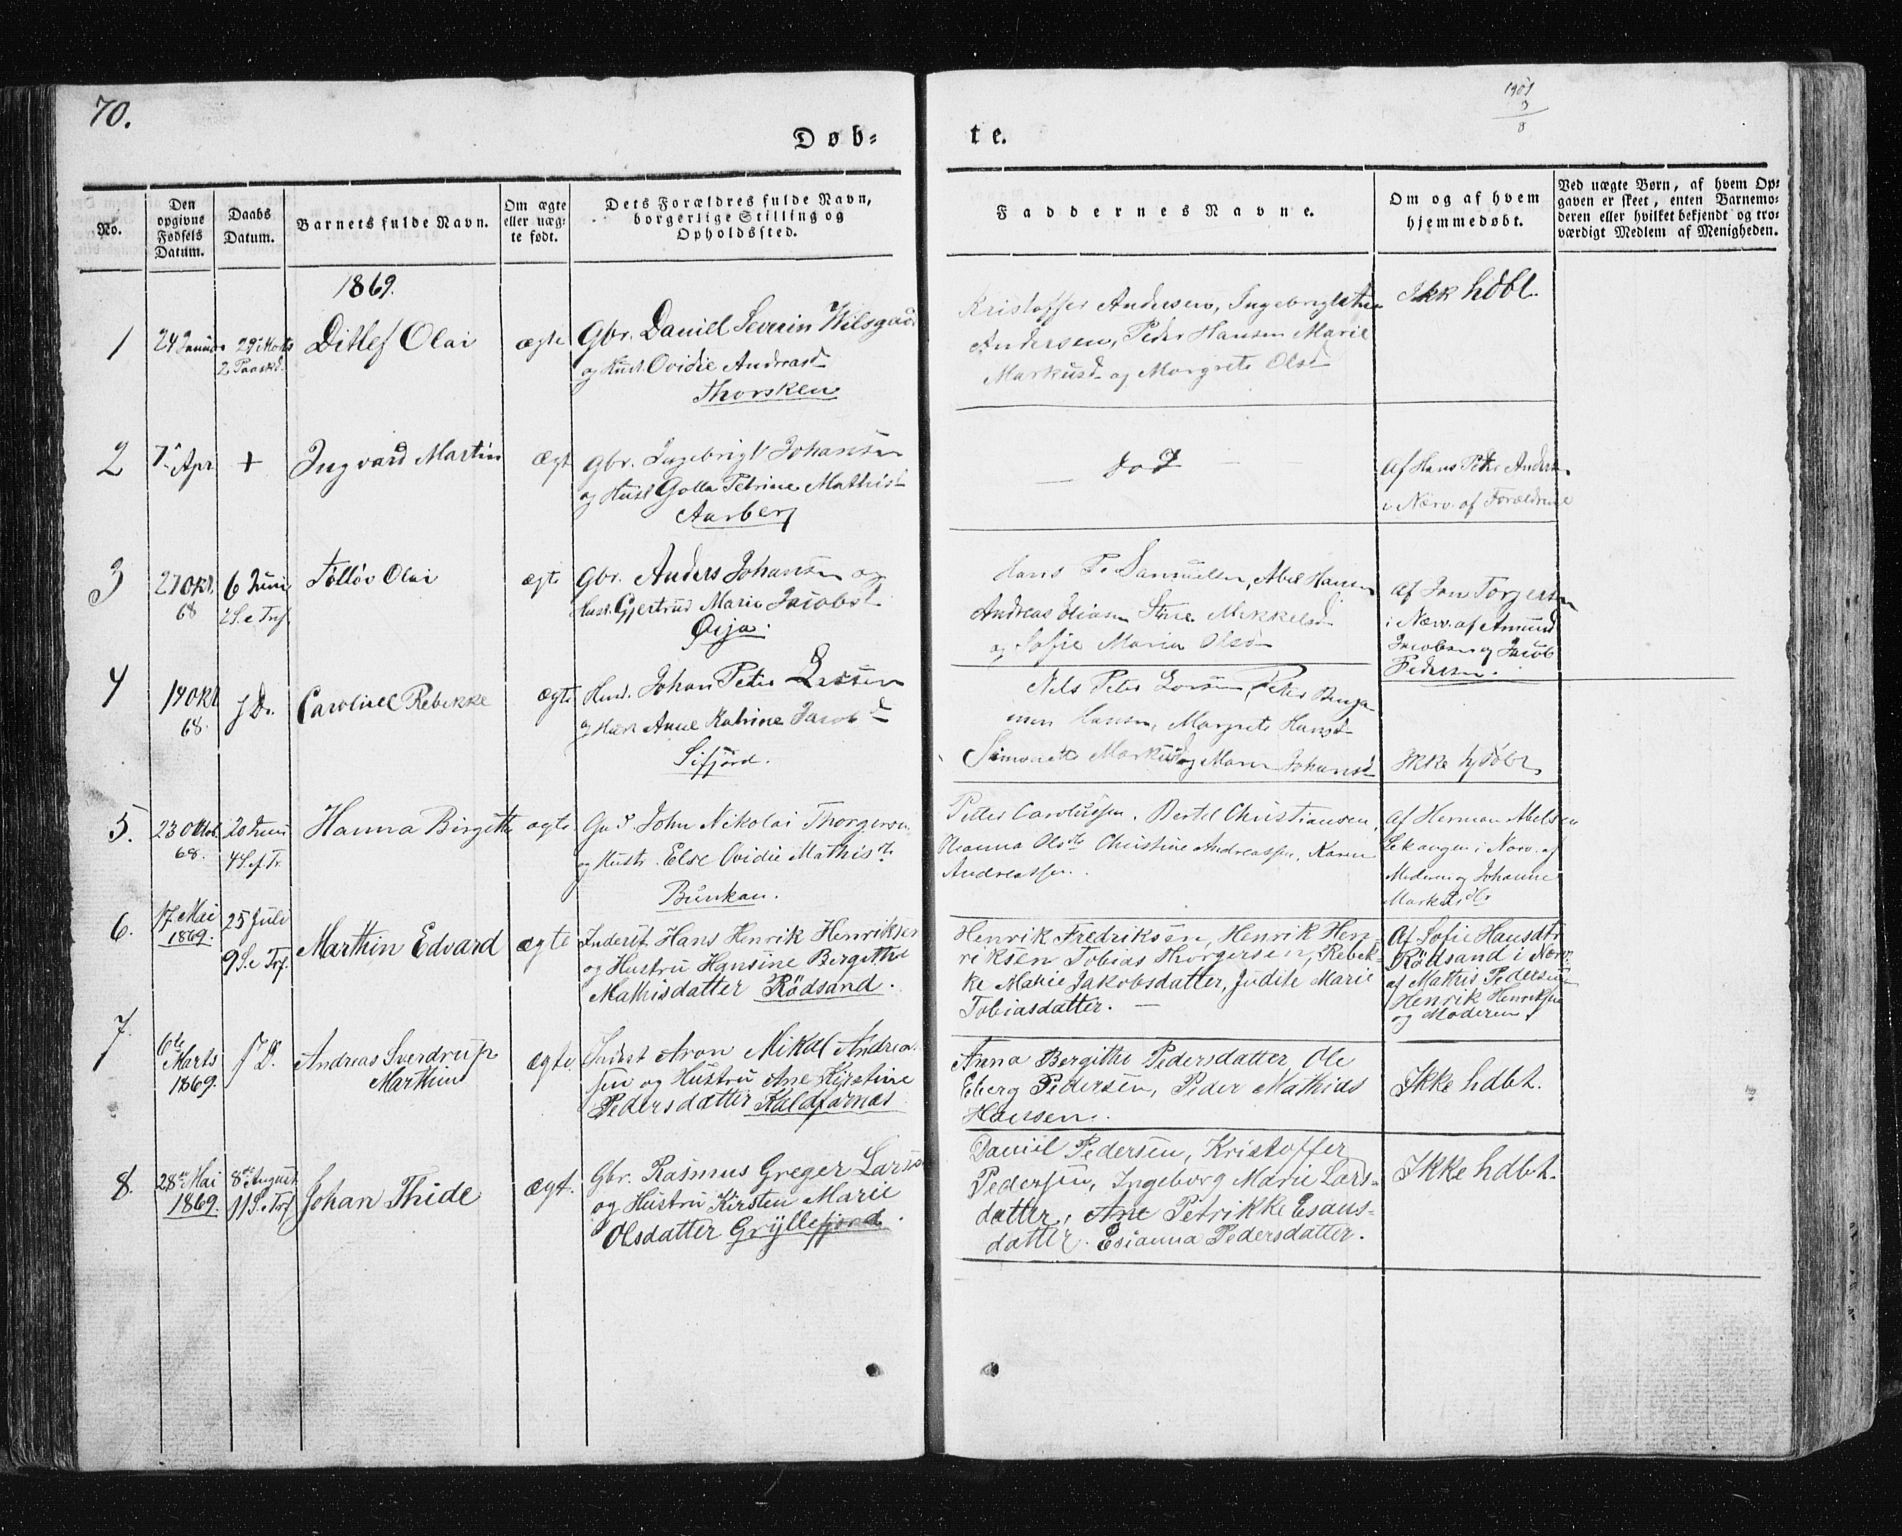 70.
Døb-
te.
No.
Den opgivne Fødsels Datum.
Daabs Datum.
Barnets fulde Navn.
Om ægte eller uægte født.
Dets Forældres fulde Navn, borgerlige Stilling og Opholdssted.
Faddernes Navne.
Om og af hvem hjemmedøbt.
Ved uægte Børn, af hvem Opgaven er skeet, enten Barnemoderen eller hvilket bekjendt og troværdigt Medlem af Menigheden.
1869.
1
24 Januar
29 Marts
2 Paaskd.
Ditlef Olai
ægte
Gbr. Daniel Severin Wilsgaard
og Hust. Ovidie Andreasd
Thorsken
Kristoffer Andersen, Ingebrigt
Andersen, Peder Hansen Marie
Markusd og Margrete Olsd
Ikk hdbt.
2
7 Apr
+
Ingvard Martin
Ægt
Gbr. Ingebrigt Johansen
og Hust Golla Petrine Mathisd
Aarberg
død
Af Hans Peter Anders
i Nærv. af Forældrene
3
27 Okt.
68
6 Juni
2 S. e Trf.
Tølløv Olai
ægte
Gbr. Anders Johansen og
Hust. Gjertrud Marie Jacobsd
Øija.
Hans P. Samuelsen, Abel Hansen
Andreas Eliasen Stine Mikkelsd
og Sofie Maria Olsd
Af Jon Torgersen
i Nærv. af Amund
Jacobsen og Jacob
Pedersen.
4
14 Okt
68.
s. D.
Caroline Rebekke
ægte
Johan Peter
og Hust Anne Katrine Jacobsd
Sifjord.
Nels Peter Larsen, Peter Benja
min Hansen, Margrete Hansd
Simonette Markusd og Maren Johansd
Ikke hjdøbt
5.
23 Oktob.
68.
20 Juni
4 S. ef. Tr.
Hanna Birgitte
ægte
John Nikolai Thorgersen
og Hustr. Else Ovidie Mathisdtr
Bunkan.
Petter Carolussen, Bertel Christiansen,
Oleanna Olsdtr Christine Andreassen, Karen
Andreassen.
Af Herman Abelsen
i Nærv. af
Moderen og Johanne
Markusdtr
6.
17. Mai
1869.
25 Juli
9 S. e Trf.
Marthin Edvard
ægte
Inderst Hans Henrik Henriksen
og Hustru Hansine Bergithe
Mathisdatter Rödsand.
Henrik Fredriksen, Henrik Hen-
riksen Tobias Thorgersen, Rebek-
ke Marie Jakobsdatter, Judith Marie
Tobiasdatter. —
Af Sofie Hansdtr
Rödsand i Nærv.
af Mathis Pedersen
Henrik Henriksen
og Moderen
7.
6te
Marts
1869.
s. D.
Andreas Sverdrup
Marthin
ægte
Inderst Aron Mikal Andrea-
sen og Hustru Ane Kirstine
Pedersdatter Kaldfarnæs
Anna Bergithe Pedersdatter, Ole
Eberg Pedersen, Peder Mathias
Hansen.
Ikke hdbt.
8.
28de Mai
1869.
8de August
11 S. e Trf
Johan Thide
ægt.
Gbr. Rasmus Greger Larsen
og Hustru Kirsten Marie
Olsdatter Gryllefjord.
Daniel Pedersen, Kristoffer
Pedersen, Ingeborg Marie Lars-
datter, Ane Petrikke Esaus-
datter. Esianna Pedersdatter.
Ikke hdbt.